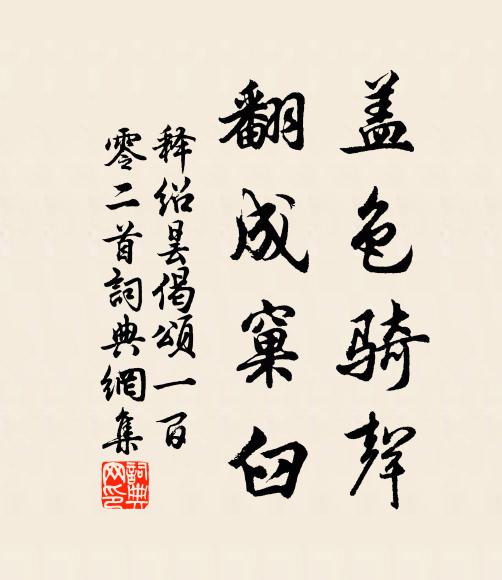 盖色骑声
翻成窠臼
释绍昙偈颂一百
零二首词典網集
詞典网印